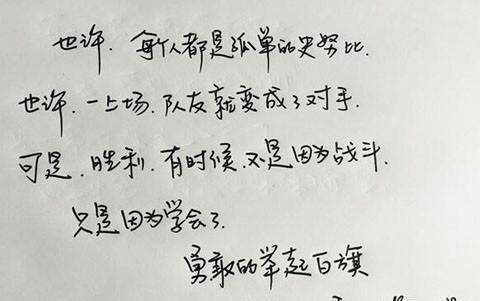 也许.每个人都是孤单的史努比.
也许.一上场.队友就变成了对手.
可是.胜利.有时候.不是因为战斗.
只是因为学会了.
勇敢的举起白旗